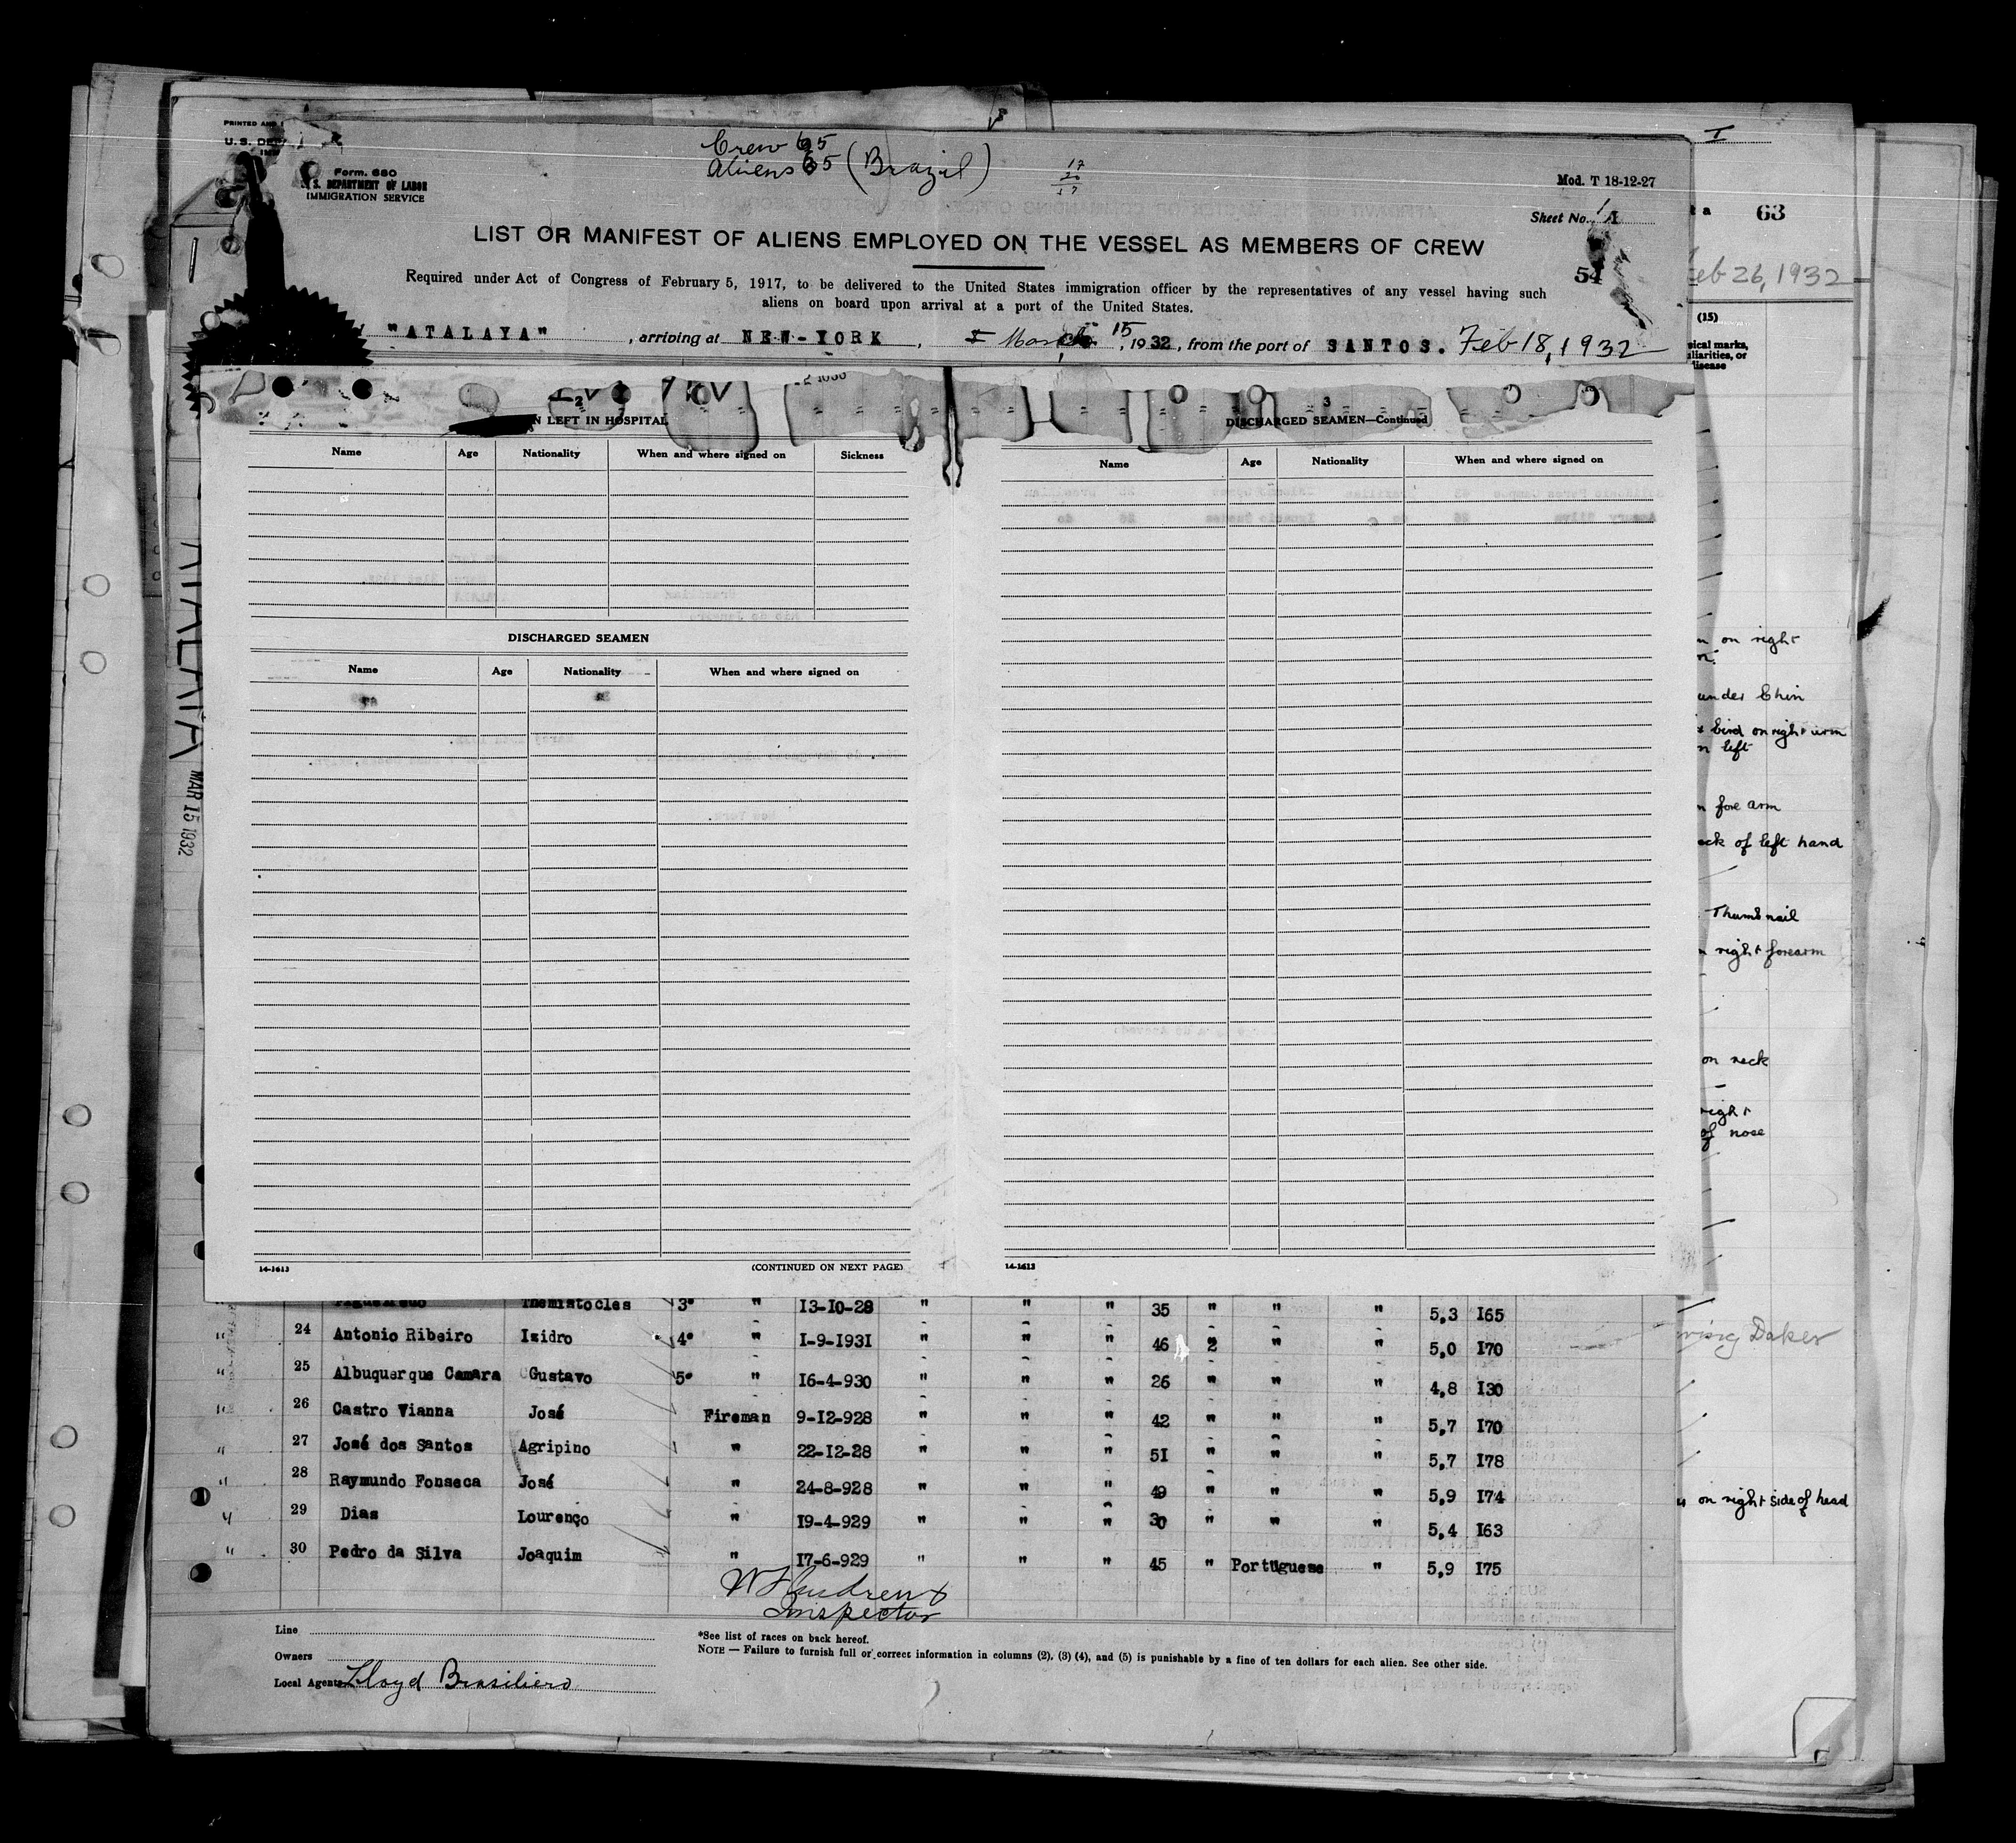 PRINTED AND
U. S. DE
Form. 680
U. S. DEPARTMENT OF LABOR
IMMIGRATION SERVICE
Crew 65
Aliens 65 (Brazil)
Mod. T 18-12-27
Sheet No. 1
LIST OR MANIFEST OF ALIENS EMPLOYED ON THE VESSEL AS MEMBERS OF CREW
54
Required under Act of Congress of February 5, 1917, to be delivered to the United States immigration officer by the representatives of any vessel having such
aliens on board upon arrival at a port of the United States.
"ATALAYA" , arriving at NEW-YORK , March 15, 1932, from the port of SANTOS. Feb 18, 1932
I
63
Feb 26, 1932
(15)
sical marks,
uliarities, or
disease
2
N LEFT IN HOSPITAL
Name Age Nationality When and where signed on Sickness
DISCHARGED SEAMEN
Name Age Nationality When and where signed on
14-1613
(CONTINUED ON NEXT PAGE)
3
DISCHARGED SEAMEN—Continued
Name Age Nationality When and where signed on
14-1613
ATALAIA
MAR 15 1932
on right
under Chin
bird on right arm
left
fore arm
ack of left hand
Thumb nail
right forearm
on neck
right
of nose
on right side of head
Figueiredo Themistocles 3° " 13-10-28 " " " 35 " " " 5,3 I65
24 Antonio Ribeiro Izidro 4° " I-9-I93I " " " 46 2 " " 5,0 I70
25 Albuquerque Camara Gustavo 5° " I6-4-930 " " " 26 " " " 4,8 I30
26 Castro Vianna José Fireman 9-I2-928 " " " 42 " " " 5,7 I70
27 José dos Santos Agripino " 22-I2-28 " " " 5I " " " 5,7 I78
28 Raymundo Fonseca José " 24-8-928 " " " 49 " " " 5,9 I74
29 Dias Lourenço " I9-4-929 " " " 30 " " " 5,4 I63
30 Pedro da Silva Joaquim " I7-6-929 " " " 45 " Portuguese " 5,9 I75
Inspector
Line
Owners
Local Agents Lloyd Brasiliero
*See list of races on back hereof.
NOTE — Failure to furnish full or correct information in columns (2), (3) (4), and (5) is punishable by a fine of ten dollars for each alien. See other side.